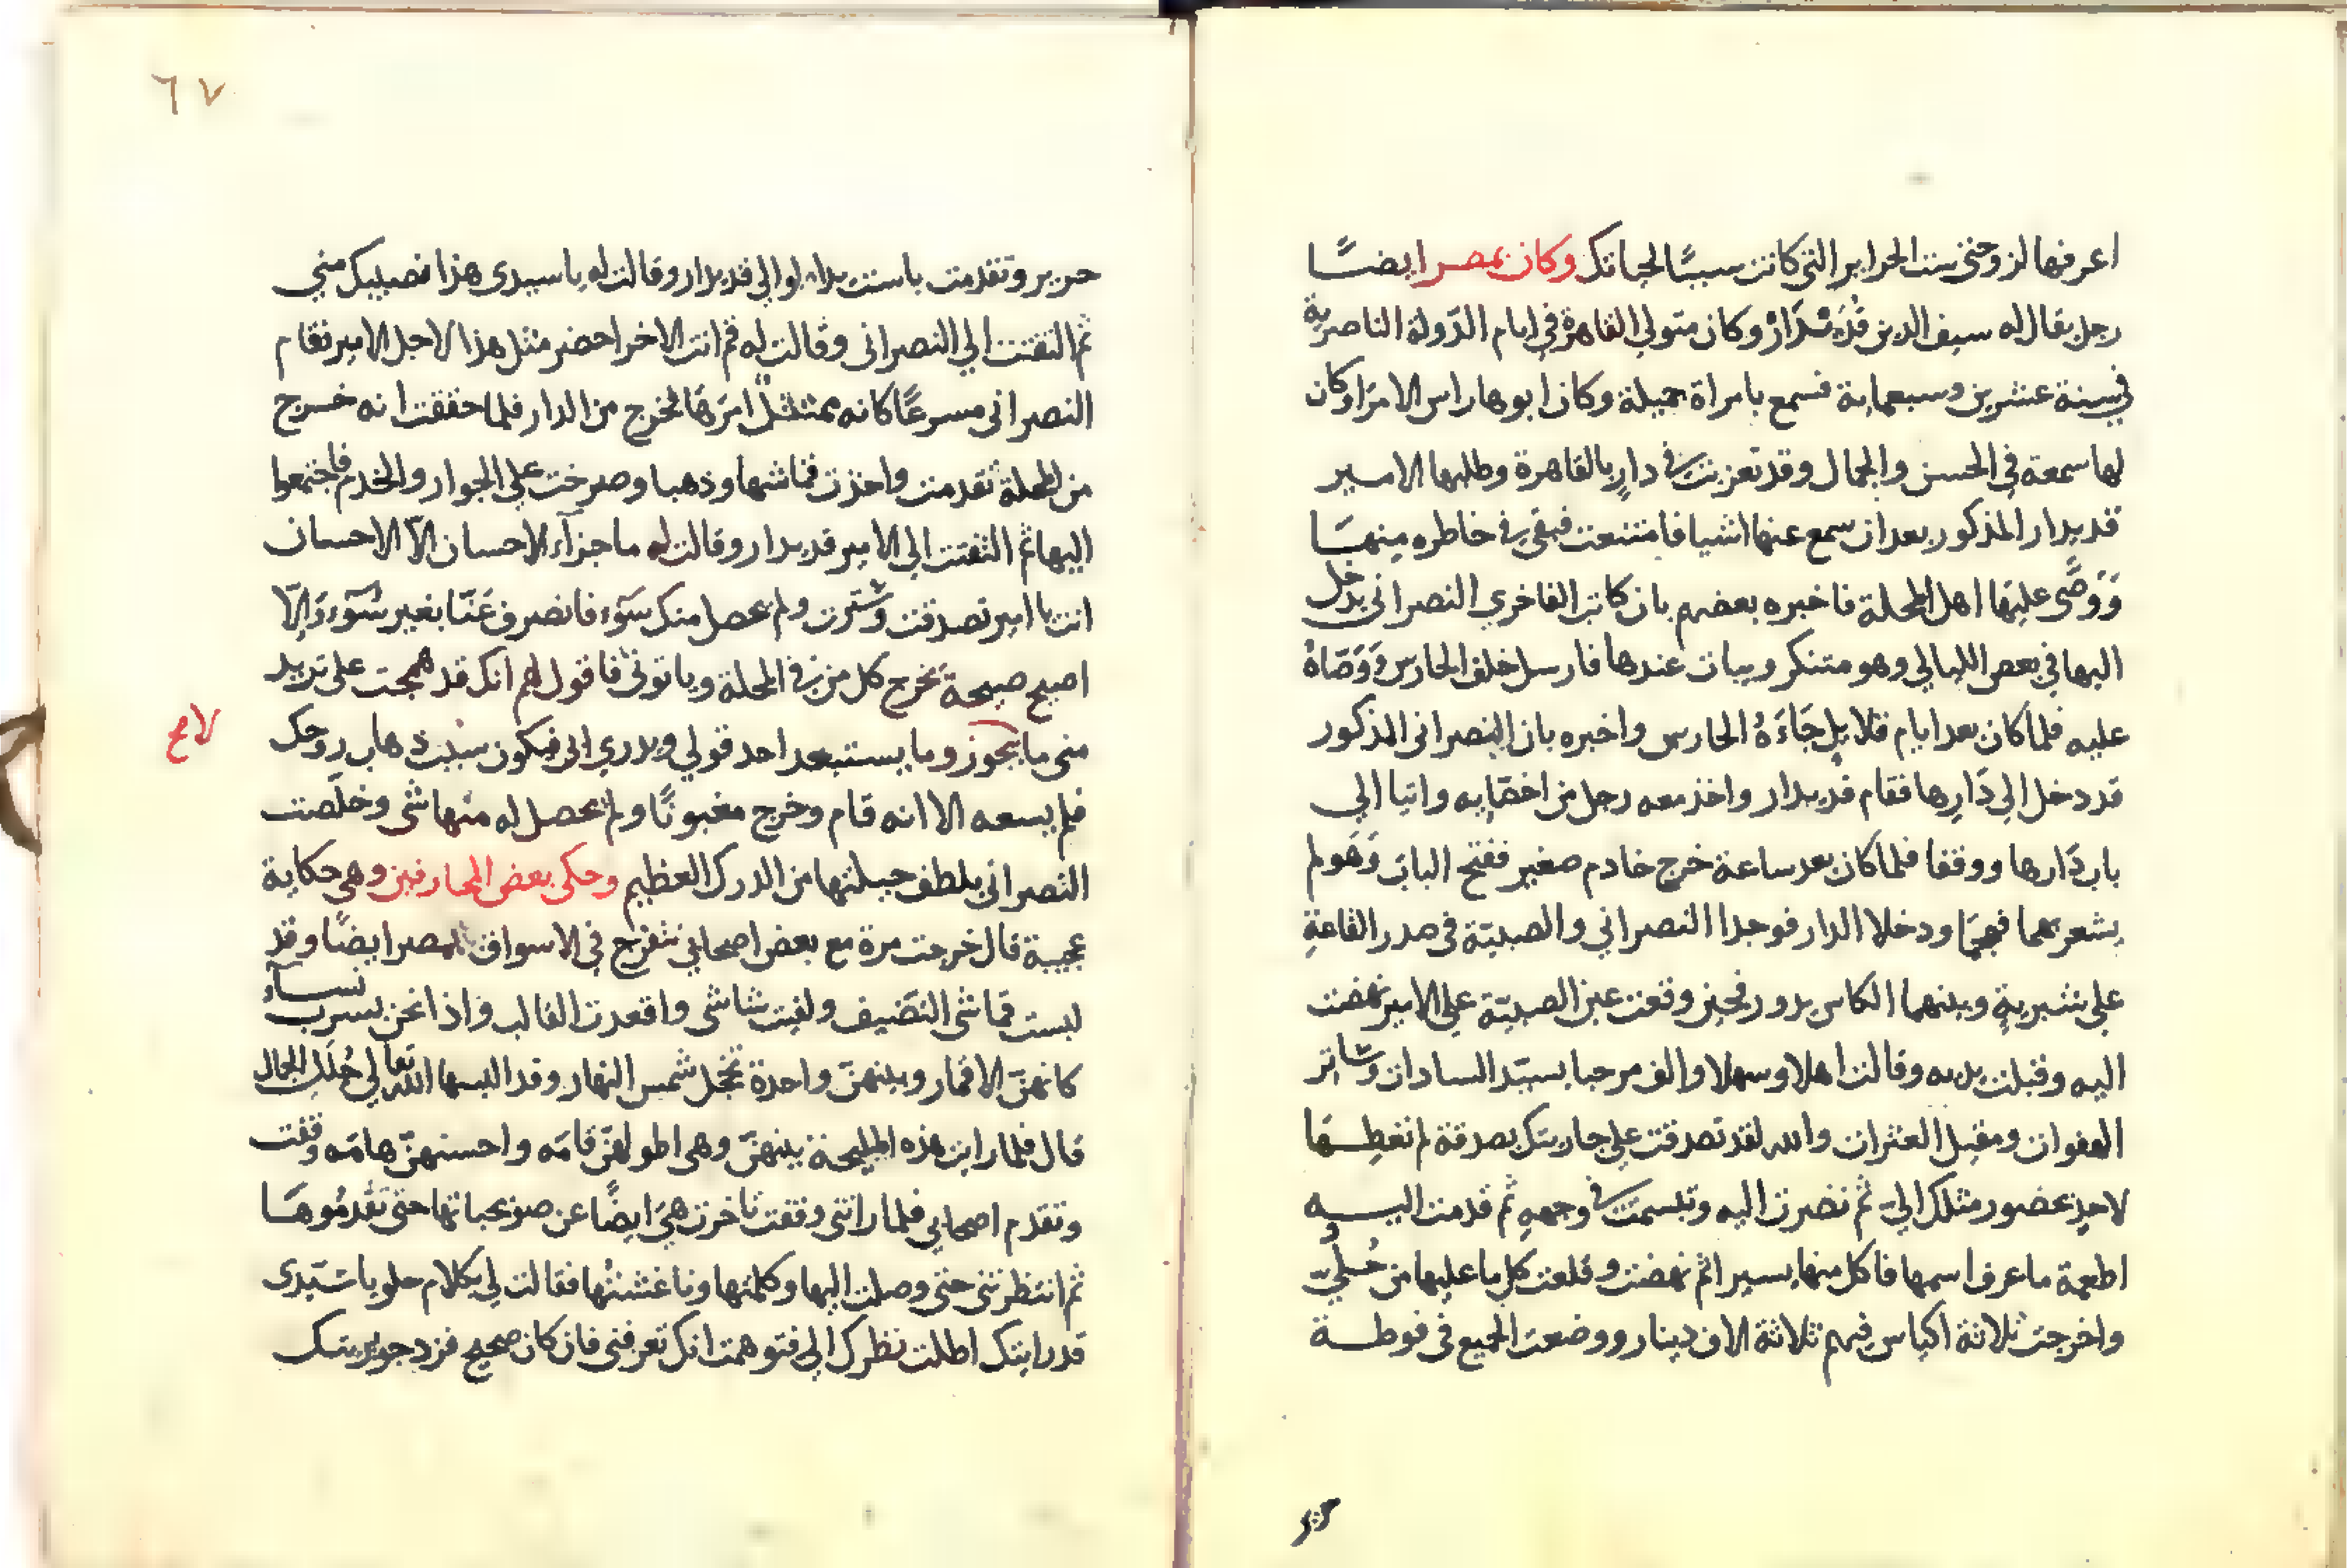 اعرفها لزوجتي ست الحراير التي كانت سببًا لحياتك وكان بمصر ايضًا
رجل يقال له سيف الدين قُدَيْدَارْ وكان متولي القاهرة في ايام الدّولة الناصرية
في سنة عشرين وسبعماية فسمع بامراة جميلة وكان ابوها راس الامرَا وكان
لها سمعة في الحسن والجمال وقد تعزبت في دارٍ بالقاهرة وطلبها الامير
قديدار المذكور بعد ان سمع عنها اشيا فامتنعت فبقي في خاطره مِنهَا
وَوَصَّى عليهَا اهل المحلة فاخبره بعضهم بان كاتب الفاخري النصراني يدخل
اليها في بعض الليالي وهو متنكر ويبات عندها فارسل خلف الحارس وَوَصَّاهُ
عليه فلما كان بعد ايام قلايل جَاءَهُ الحارس واخبره بان النصراني المذكور
قد دخل الي دَارِها فقام قديدار واخذ معه رجل من اخصّايه واتيا الي
باب دَارها ووقفا فلما كان بعد ساعة خرج خادم صغير ففتح الباب وَهَو لم
يشعر بهما فهجمَا ودخلا الدار فوجدا النصراني والصبيّة في صدر القاعةِ
علي بشبريةٍ وبينهما الكاس يدور فحين وقعت عين الصبيّة علي الامير نهضت
اليه وقبلت يديه وقالت اهلا وسهلا والف مرحبا بسيّد السادات وساتر
العفوات ومقيل العثرات والله لقد تصدقت علي جاريتك بصدقة لم تعطِهَا
لاحدٍ بحضور مثلك اليّ ثم نضرت اليه وتبسمت في وجههِ ثم قدمت اليه
اطعمة ما عرف اسمها فاكل منها يسيرا ثم نهضت وقلعت كل ما عليها من حُليّ
واخرجت ثلاثة اكياس فيهم ثلاثة الاف دينار ووضعت الجميع في فوطة
حرير
٦٧
حرير وتقدمت باست يد الوالي قديدار وقالت له يا سيدي هذا نصيبك مني
ثم التفتت الي النصراني وقالت له قم انت الاخر احضر مثل هذا لاجل الامير فقام
النصراني مسرعًا كانه ممتثلٌ امرَهَا فخرج من الدار فلما حققت انه خرج
من المحلة تقدمت واخذت قماشها وذهبا وصرخت علي الجوار والخدم فاجتمعوا
اليها ثم التفتت الي الامير قديدار وقالت له ما جزآء الاحسان الّا الاحسان
انت يا امير تصدقت وسترت ولم يحصل منك سَوّء فانصرف عَنّا بغير سَوّء وَالّا
اصيح صيحةً يخرج كل من في المحلة وياتوني فاقول لهم انك قد هجمت علي تريد
مني ما يجوز وما يستبعد احد قولي ويدري ابي فيكون سبب ذهاب روحك
فلم يسعه الا انه قام وخرج مغبونًا ولم يحصل له منها شي وخلّصت
النصراني بلطف حيلتها من الدرك العظيم وحكي بعض المحارفين وهي حكاية
عجيبة قال خرجت مرة مع بعض اصحابي نتفرج في الاسواق بمصر ايضًا وقد
لبست قماشي النضيف ولفيت شاشي واقعدت القالب واذا نحن بسرب نسآء
كانهنّ الاقمار وبينهنّ واحدة تخجل شمس النهار وقد البسها الله تعالي حُلَل الجمال
قال فلما رايت هذه المليحة بينهنّ وهي اطولهنّ قامَه واحسنهنّ هامَه وقفت
وتقدم اصحابي فلما راتني وقفت تاخرت هيَ ايضًا عن صويحباتها حتي تقدمُوهَا
ثم انتظرتني حتي وصلت اليها وكلمتها وناغشتُها فقالت لي بكلام حلو يا سيّدي
قد رايتك اطلت نظرك الي فتوهمت انك تعرفني فان كان صحيح فزد جويريتك